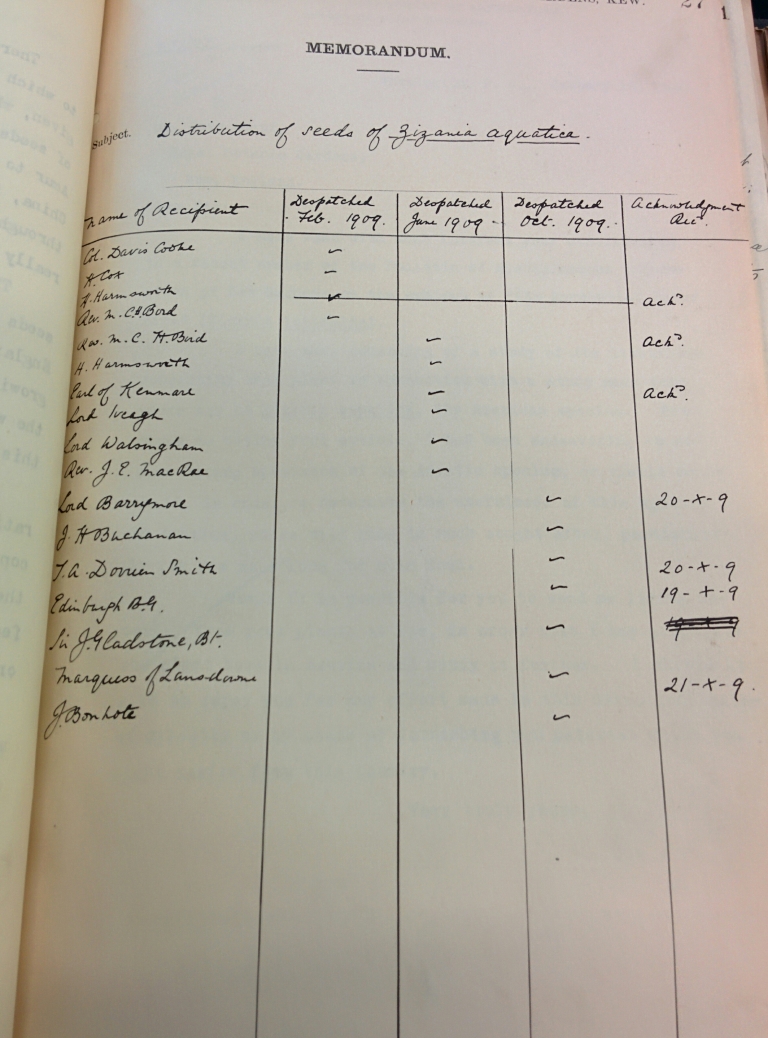 GARDENS, KEW.
27
1
MEMORANDUM.
Subject. Distribution of seeds of Zizania aquatica.
Name of Recipient Despatched Feb. 1909. Despatched June 1909 Despatched Oct. 1909. Acknowledgment Rec.
Col. Davis Cooke ✓
A. Cox ✓
H. Harmsworth ✓ Ackd.
Rev. M. C. H. Bird ✓
Rev. M. C. H. Bird ✓ Ackd.
H. Harmsworth ✓
Earl of Kenmare ✓ Ackd.
Lord Iveagh ✓
Lord Walsingham ✓
Rev. J. E. MacRae ✓
Lord Barrymore ✓ 20-X-9
J. H Buchanan ✓
T. A. Dorrien Smith ✓ 20-X-9
Edinburgh B.G. ✓ 19-X-9
Sir J. Gladstone, Bt. ✓
Marquess of Lansdowne ✓ 21-X-9.
J. Bonhote ✓